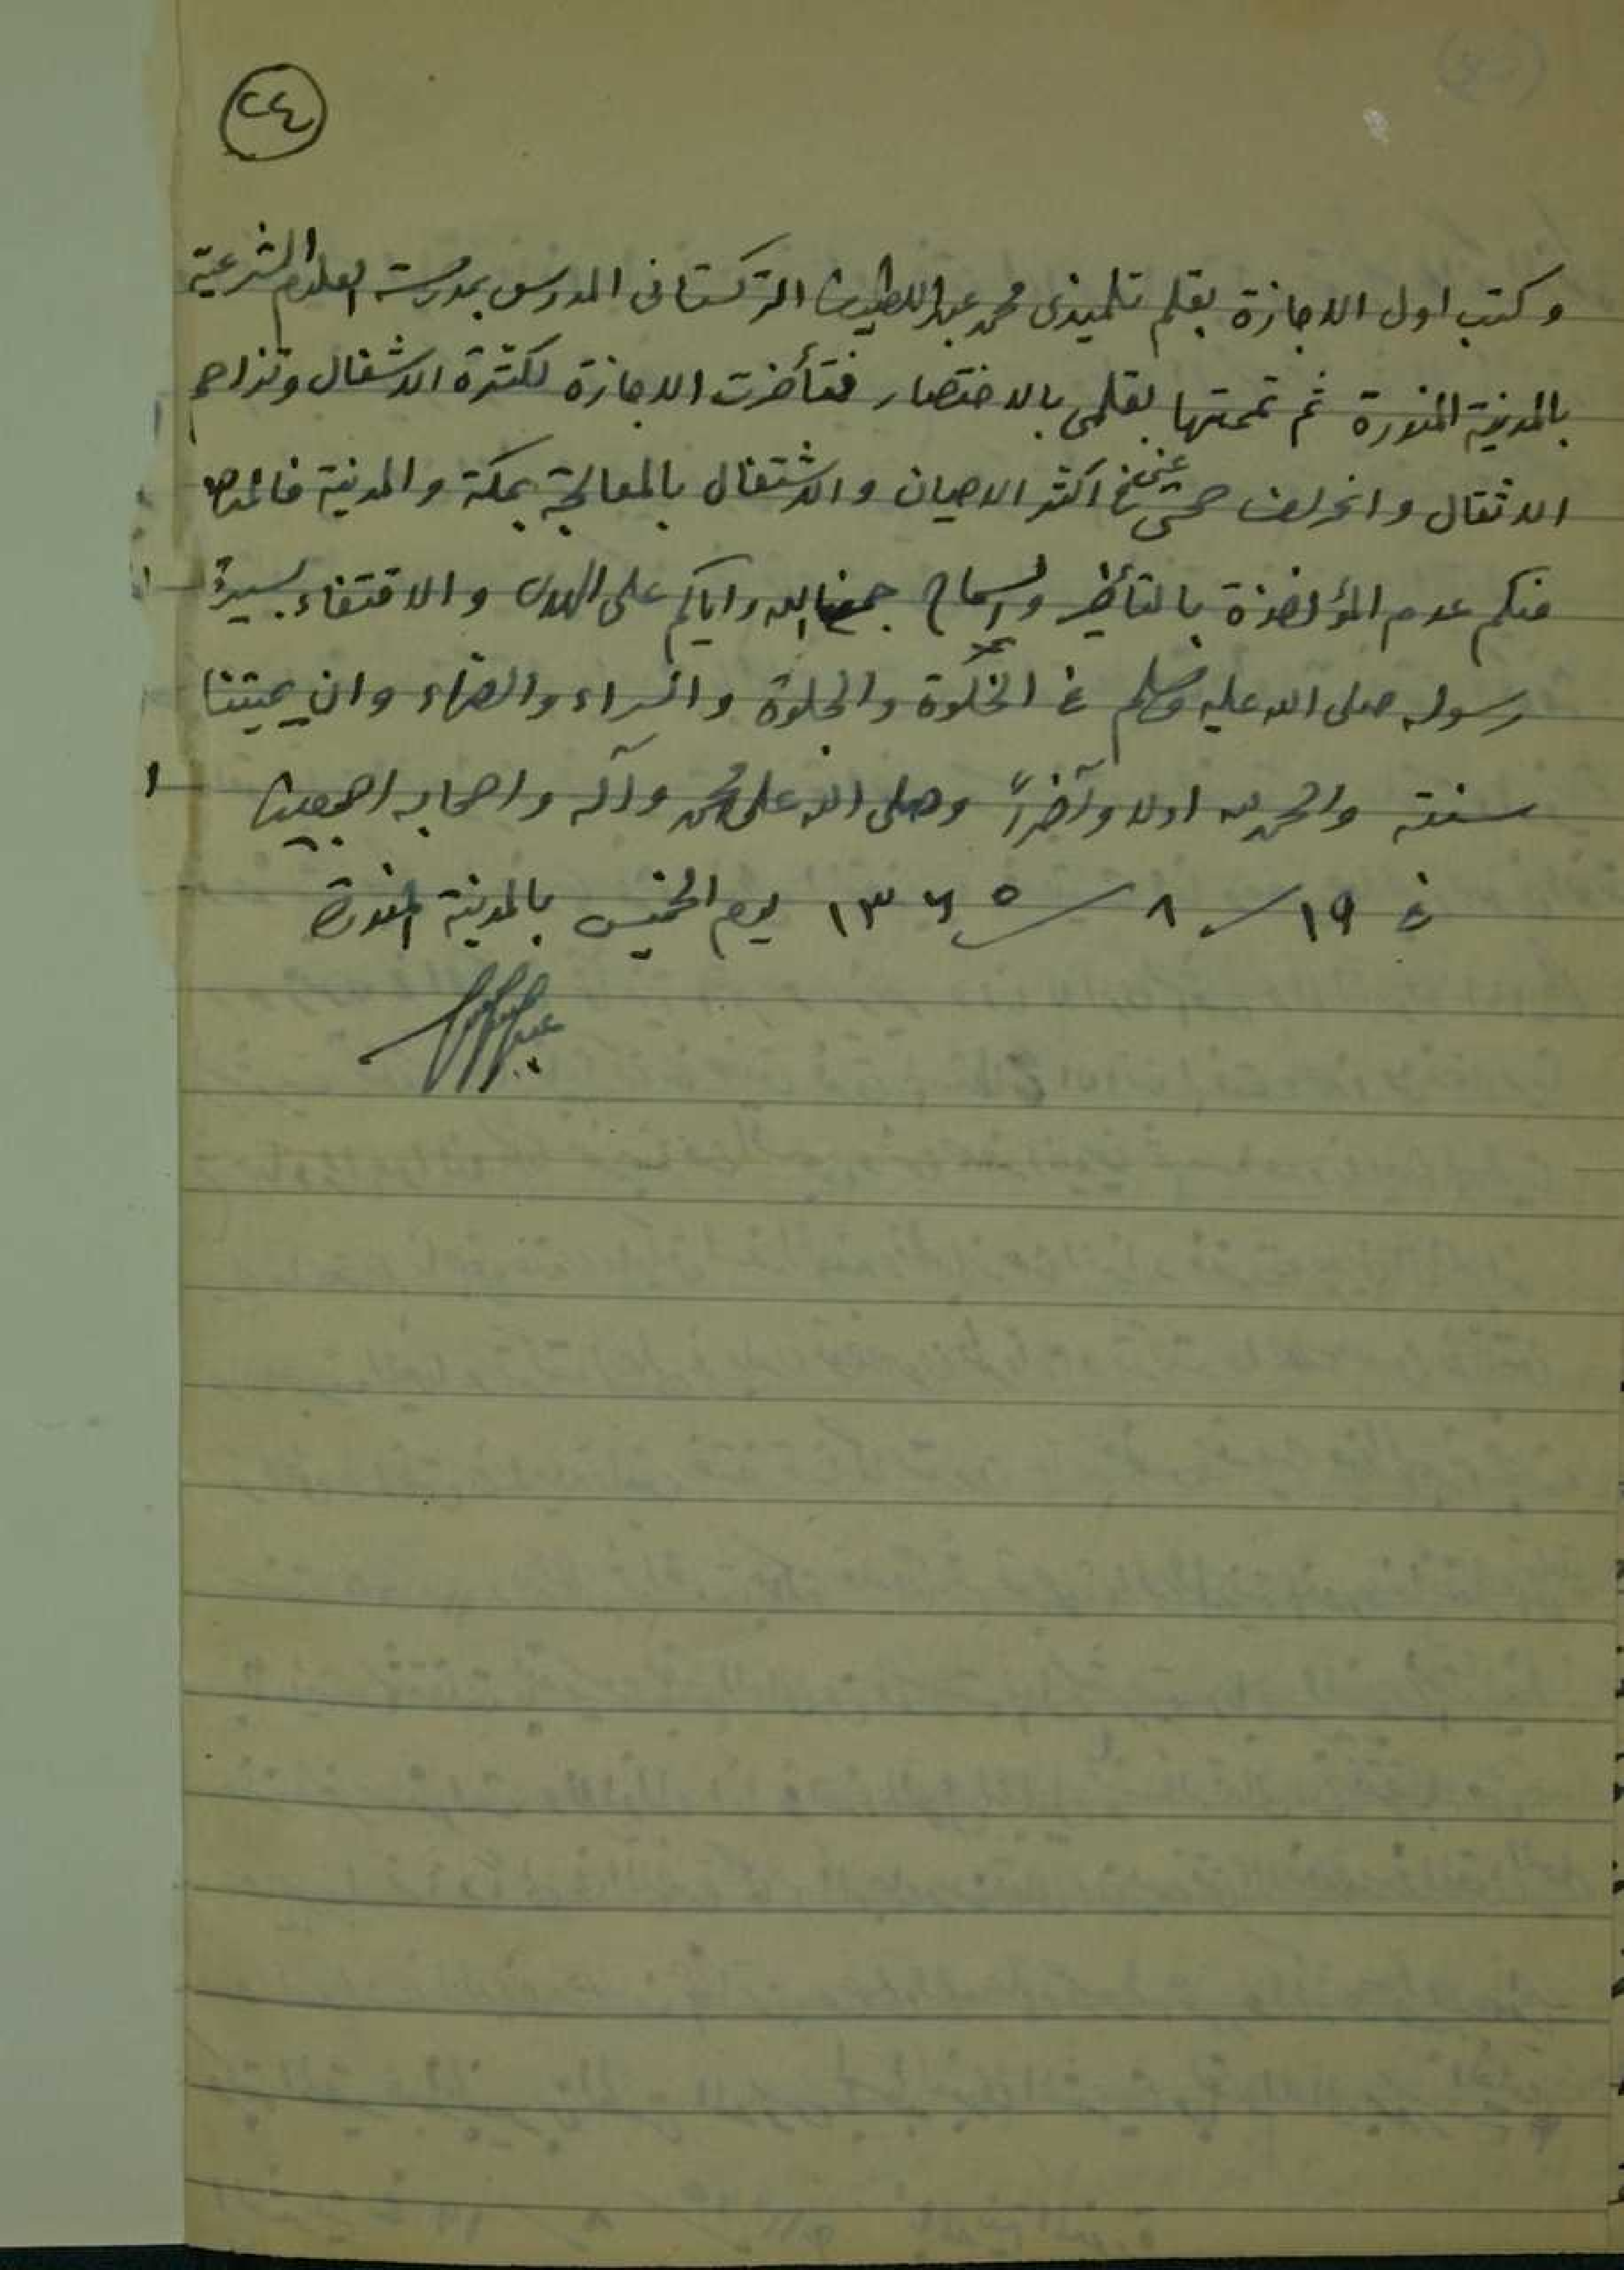 ٢٤
وكتب اول الاجازة بقلم تلميذى محمد عبد اللطيف التركستانى المدرس بمدرسة العلوم الشرعية
بالمدينة المنورة ثم تممتها بقلمى بالاختصار فتأخرت الاجازة لكثرة الاشغال وتزاحم
الاثقال وانحراف صحتى فى اكثر الاحيان والاشتغال بالمعالجة بمكة والمدينة فالمرجو
منكم عدم المؤاخذة بالتأخير والسماح جمعنا الله واياكم على الهدى والاقتفاء بسيرة
رسوله صلى الله عليه وسلم فى الخلوة والجلوة والسراء والضراء وان يميتنا
سنته والحمد لله اولا وآخراً وصلى الله على محمد وآله واصحابه اجمعين
فى ١٩ / ٨ / ١٣٦٥ يوم الخميس بالمدينة المنورة